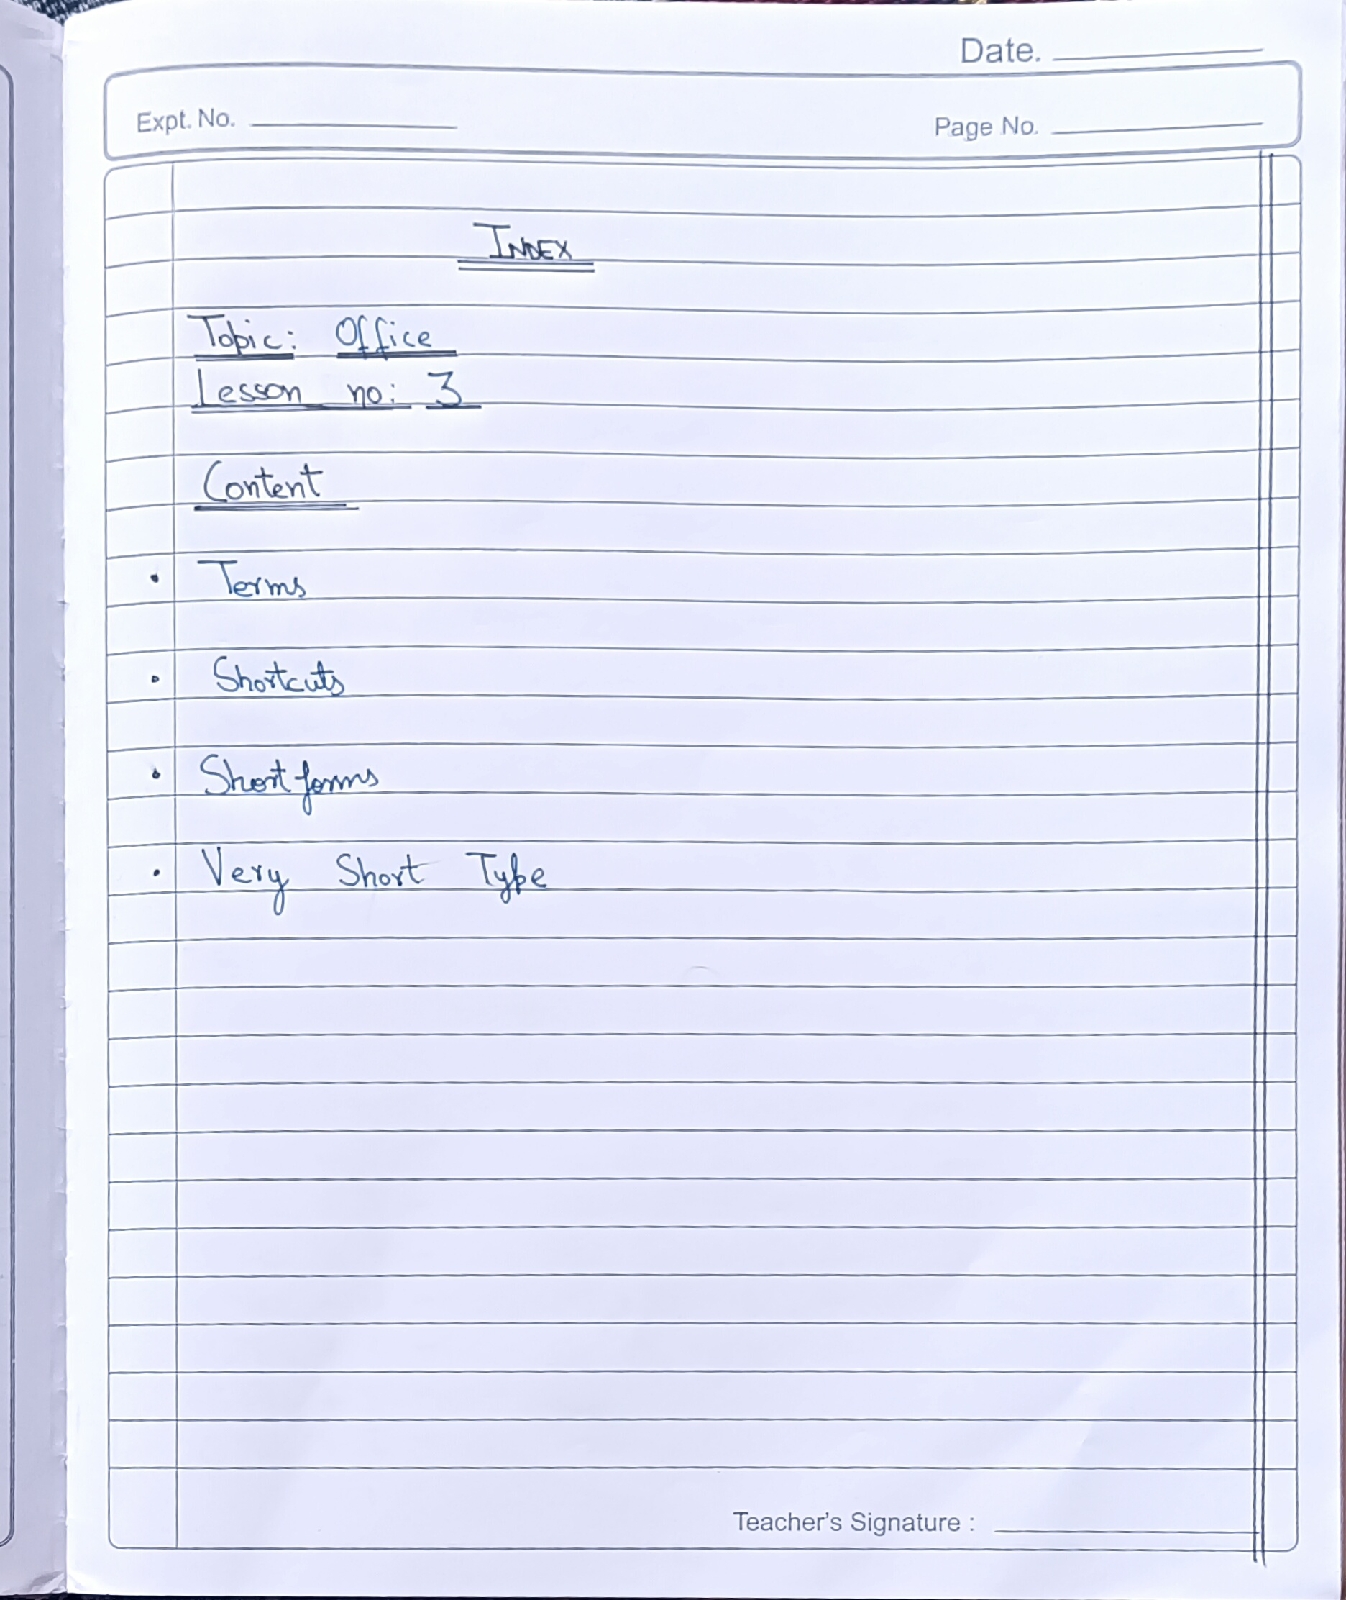 Date.
Expt. No.
Page No.
INDEX
Topic: Office
Lesson no: 3
Content
• Terms
• Shortcuts
• Short forms
• Very Short Type
Teacher's Signature :